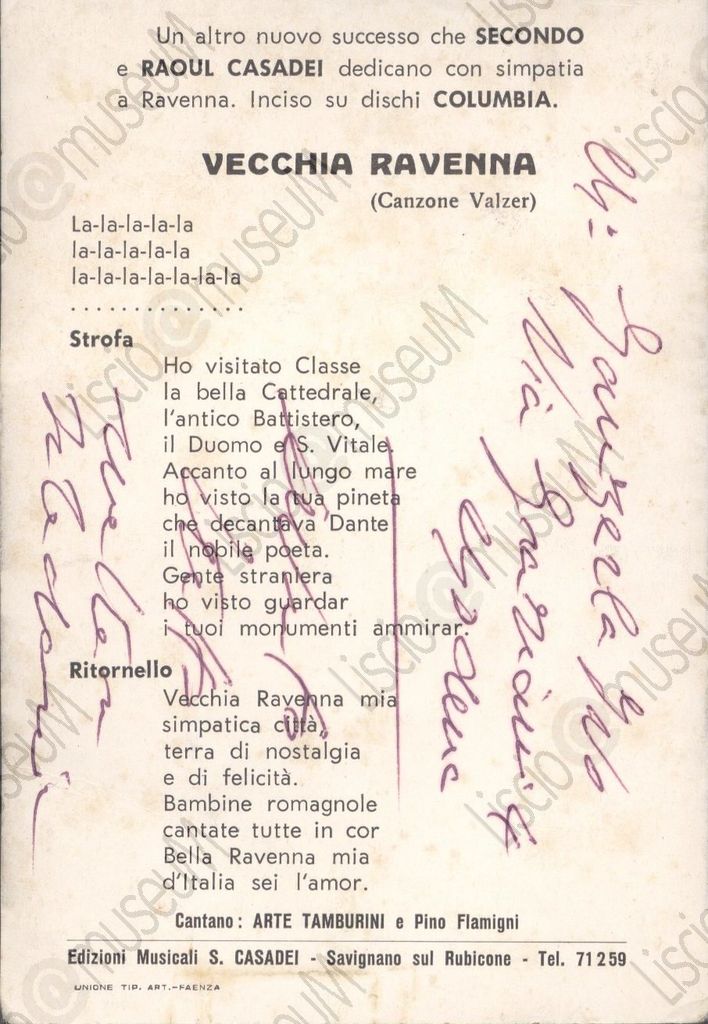 Un altro nuovo successo che SECONDO
e RAOUL CASADEI dedicano con simpatia
a Ravenna. Inciso su dischi COLUMBIA.
VECCHIA RAVENNA
(Canzone Valzer)
La-la-la-la-la
la-la-la-la-la
la-la-la-la-la-la-la
. . . . . . . . . . . . . .
Strofa
Ho visitato Classe
la bella Cattedrale,
l'antico Battistero,
il Duomo e S. Vitale.
Accanto al lungo mare
ho visto la tua pineta
che decantava Dante
il nobile poeta.
Gente straniera
ho visto guardar
i tuoi monumenti ammirar.
Ritornello
Vecchia Ravenna mia
simpatica città,
terra di nostalgia
e di felicità.
Bambine romagnole
cantate tutte in cor
Bella Ravenna mia
d'Italia sei l'amor.
Cantano: ARTE TAMBURINI e Pino Flamigni
Edizioni Musicali S. CASADEI - Savignano sul Rubicone - Tel. 71259
UNIONE TIP. ART.-FAENZA
Via
Modena
Liscio@museuM